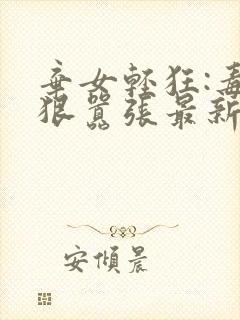 棄女輕狂:毒
狠囂張最新
安傾晨